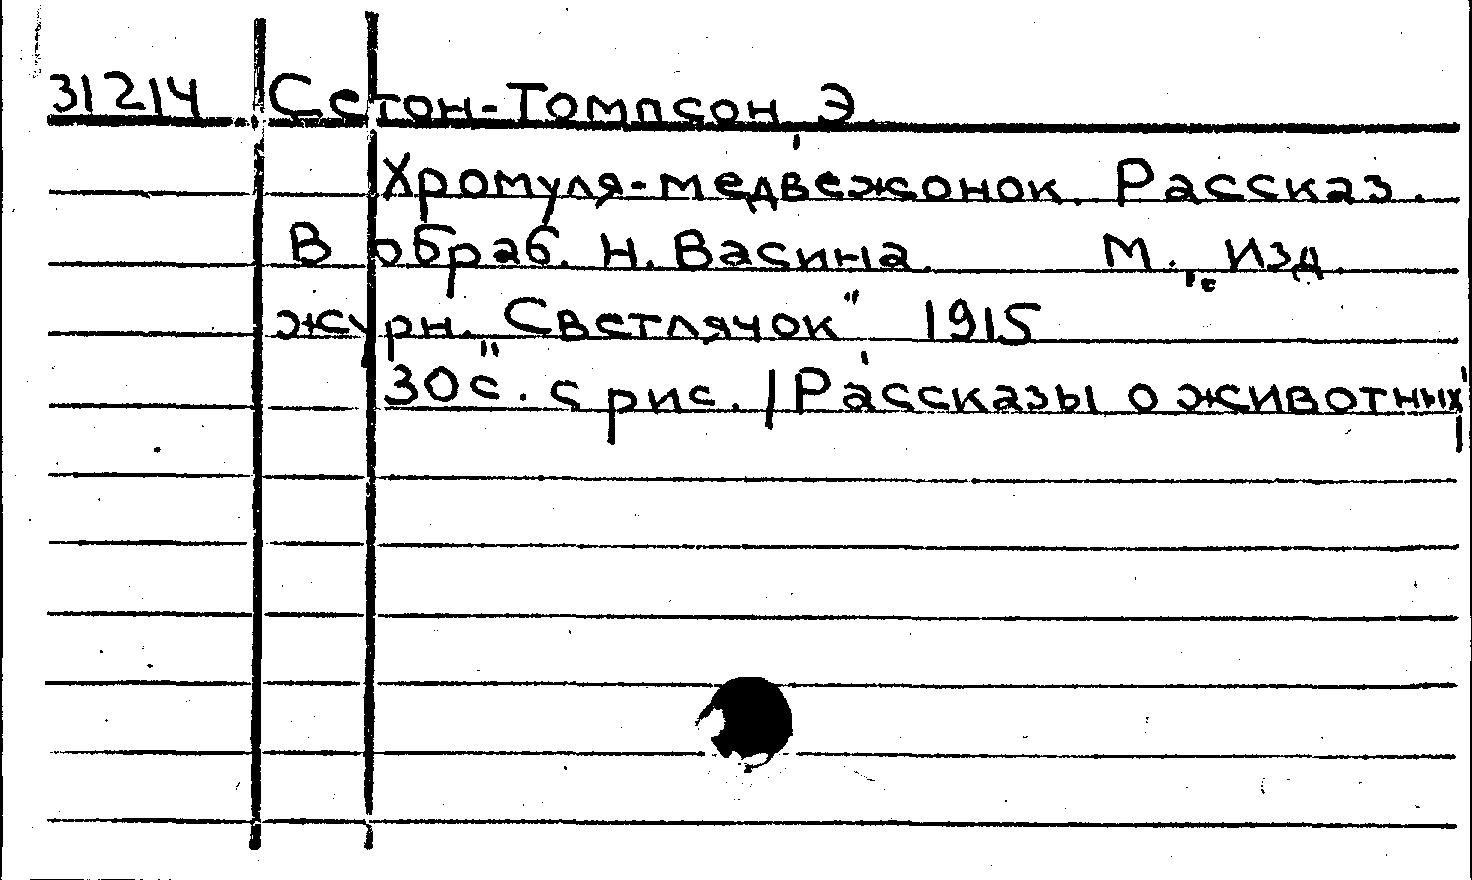 31214 Сетон-Томпсон, Э.
Хромуля-медвежонок. Рассказ.
В обраб. Н. Васина. М., Изд.
журн. "Светлячок", 1915
30 с. с рис. /Рассказы о животных/